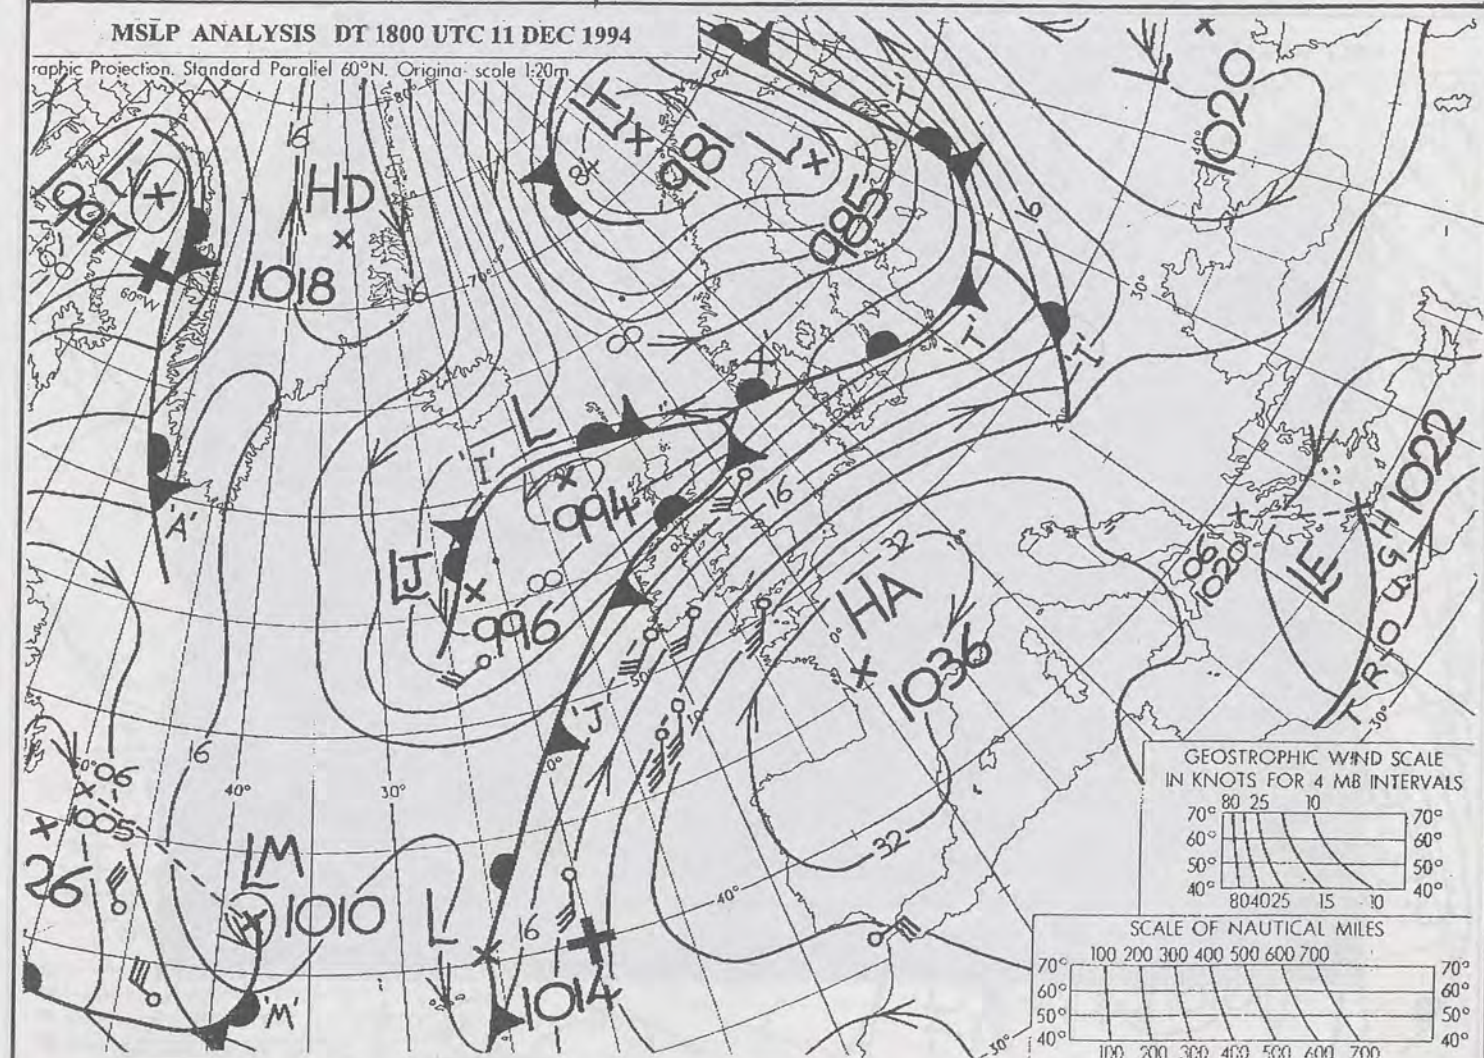 MSLP ANALYSIS DT 1800 UTC 11 DEC 1994
raphic Projection. Standard Parallel 60°N. Original scale 1:20m
80°
16
LV
997
60°W
HD
1018
16
70°
LT
84
981
L
985
'T'
16
L
1020
40°
30°
'T'
'T'
L
'I'
994
LJ
996
'A'
16
32
10°
HA
0°
1036
06
1020
LE
TROUGH 1022
30°
50°
10°
'J'
20°
16
50°
06
1005
40°
30°
26
LM
1010
L
16
1014
'M'
32
40°
30°
GEOSTROPHIC WIND SCALE
IN KNOTS FOR 4 MB INTERVALS
80 25 10
70° 70°
60° 60°
50° 50°
40° 40°
80 40 25 15 10
SCALE OF NAUTICAL MILES
100 200 300 400 500 600 700
70° 70°
60° 60°
50° 50°
40° 40°
100 200 300 400 500 600 700